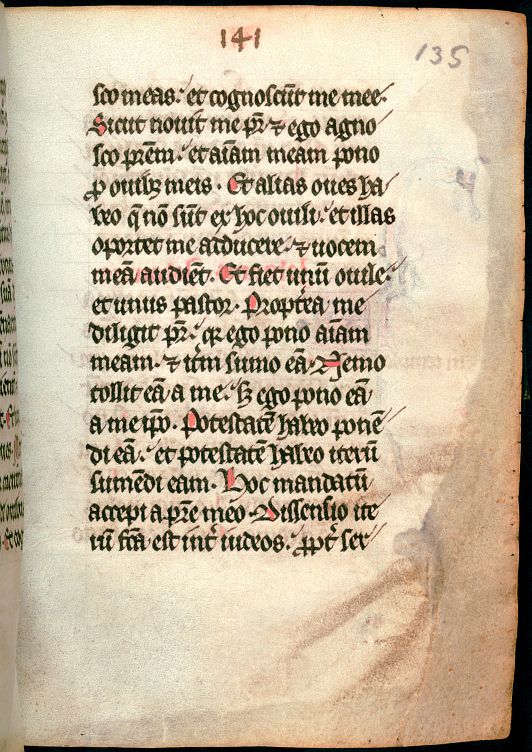 141
135
sco meas. et cognoscūt me mee.
Sicut nouit me pr̄ ⁊ ego agno
sco prēm. et aīam meam pono
ꝓ ouibꝫ meis. Et alias oues ha
beo q̄ nō sūt ex hoc ouili. et illas
oportet me adducere. ⁊ uocem
meā audiēt. Et fiet unū ouile
et unus pastor. Propterea me
diligit pr̄. qꝛ ego pono aīam
meam. ⁊ itm̄ sumo eā. Nemo
tollit eā a me. sꝫ ego pono eā
a me ip̄o. Potestatē habeo ponē
di eā. et potestatē habeo iterū
sumēdi eam. Hoc mandatū
accepi a pr̄e meo. Dissensio ite
rū fc̄a est int̄ iudeos. ꝓpt̄ ser